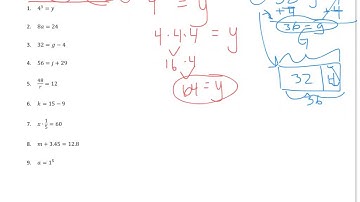 1. 4³ = y
2. 8a = 24
3. 32 = g − 4
4. 56 = j + 29
5. 48/r = 12
6. k = 15 − 9
7. x · 1/5 = 60
8. m + 3.45 = 12.8
9. a = 1⁵
4 = y
4 · 4 · 4 = y
16 · 4
64 = y
+4 +4
36 = g
G
32 4
36